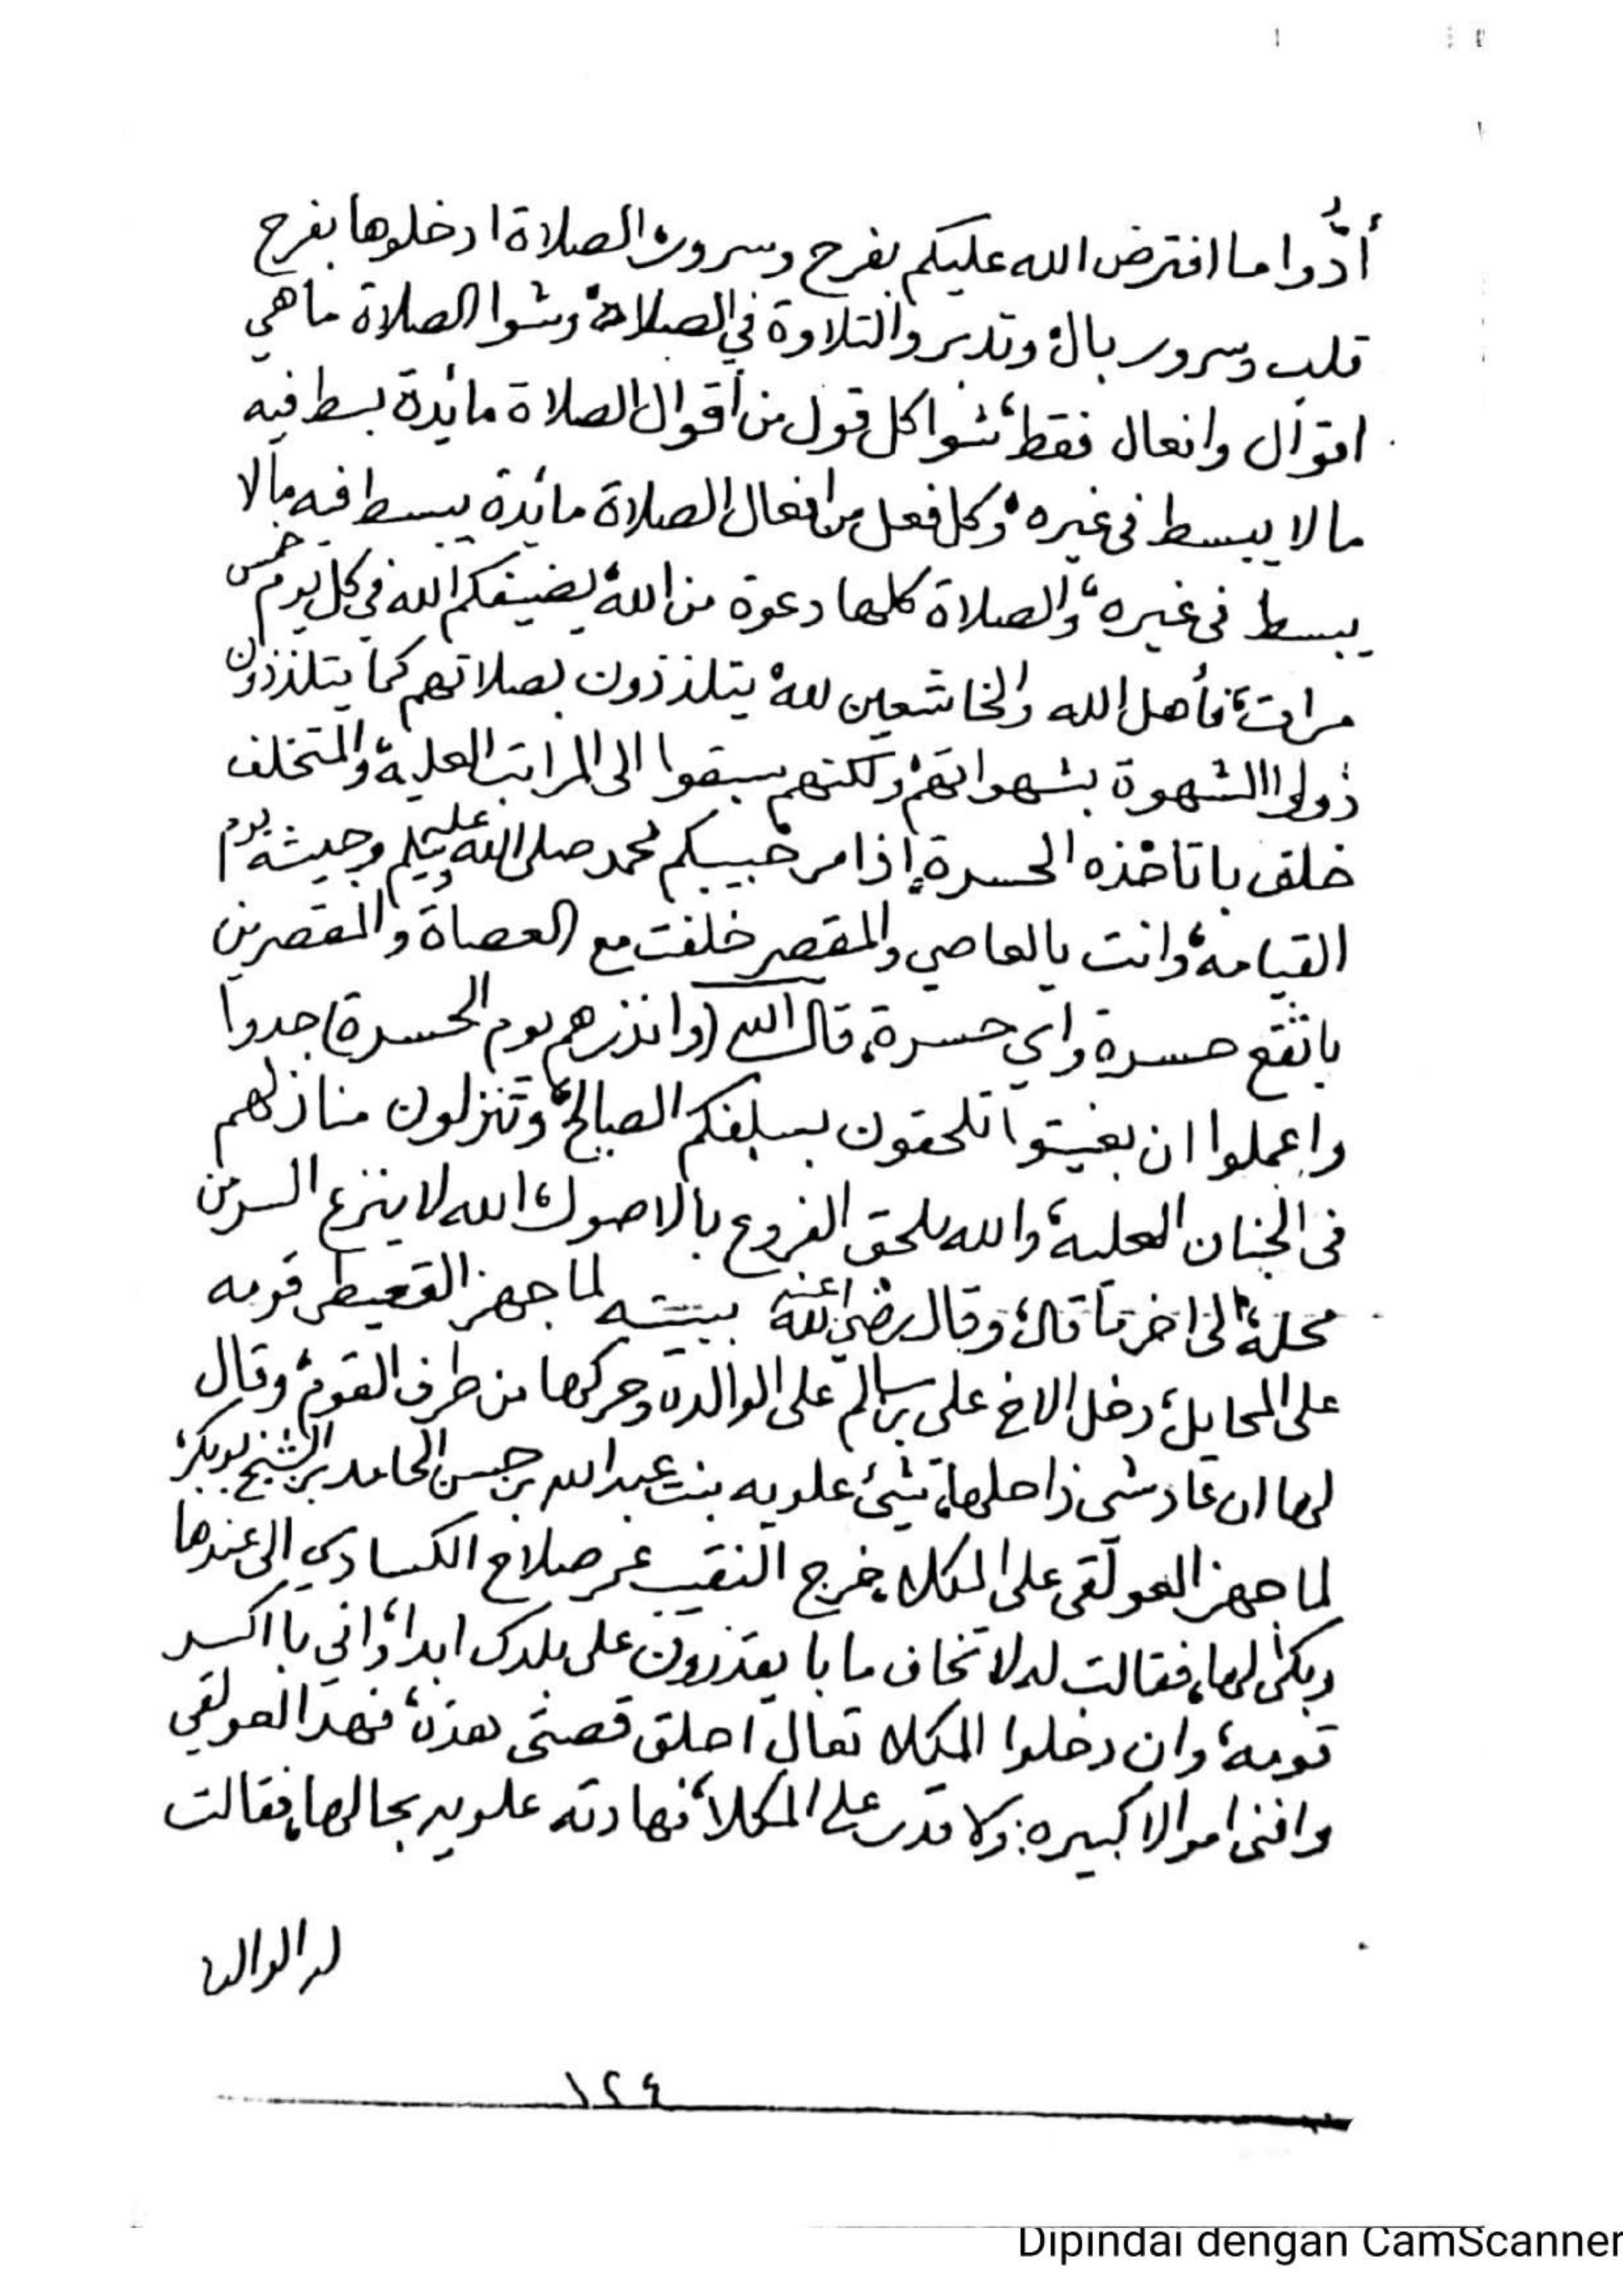 أدُّوا ما افترض الله عليكم بفرح وسرور، الصلاة ادخلوها بفرح
قلب وسرور بال، وتدبروا التلاوة في الصلاة، وشوا الصلاة ما هي
اقوال وافعال فقط، شوا كل قول من أقوال الصلاة مائدة بسط فيه
ما لا يبسط في غيره، وكل فعل من افعال الصلاة مائدة يبسط فيه ما لا
يبسط في غيره، والصلاة كلها دعوة من الله، يضيفكم الله في كل يوم خمس
مرات، فأهل الله والخاشعين لله، يتلذذون بصلاتهم كما يتلذذون
ذولا الشهوة بشهواتهم، ولكنهم سبقوا الى المراتب العلية، والمتخلف
خلف باتاخذه الحسرة، إذا مر حبيبكم محمد صلى الله عليه وسلم وجيشه يوم
القيامة، وانت يا العاصي والمقصر خلفت مع العصاة والمقصرين
باتقع حسرة واي حسرة، قال الله (وانذرهم يوم الحسرة) جدوا
واعملوا ان بغيتوا تلحقون بسلفكم الصالح، وتنزلون منازلهم
في الجنان العلية، والله يلحق الفروع بالاصول، الله لا ينزع السر من
محله، الى اخر ما قال، وقال رضي الله عنه ببيته لما جهز القعيطي قومه
على المحايل، دخل الاخ علي بن سالم على الوالدة وحركها من طرف القوم، وقال
لها ان عاد شي ذا حلها، شيء علويه بنت عبدالله بن حسن الحامد بن الشيخ بوبكر،
لما جهز العولقي على المكلا، خرج النقيب عمر صلاح الكسادي الى عندها
وبكى لها، فقالت له لا تخاف ما با يقدرون على بلدك ابدا، واني با اكسر
قومه، وان دخلوا المكلا تعال احلق قصتي هذه، فهذا العولقي
وافنى اموالا كبيره، ولا قدر على المكلا، فهادته علويه بحالها، فقالت
له الوالده
١٢٤
Dipindai dengan CamScanner